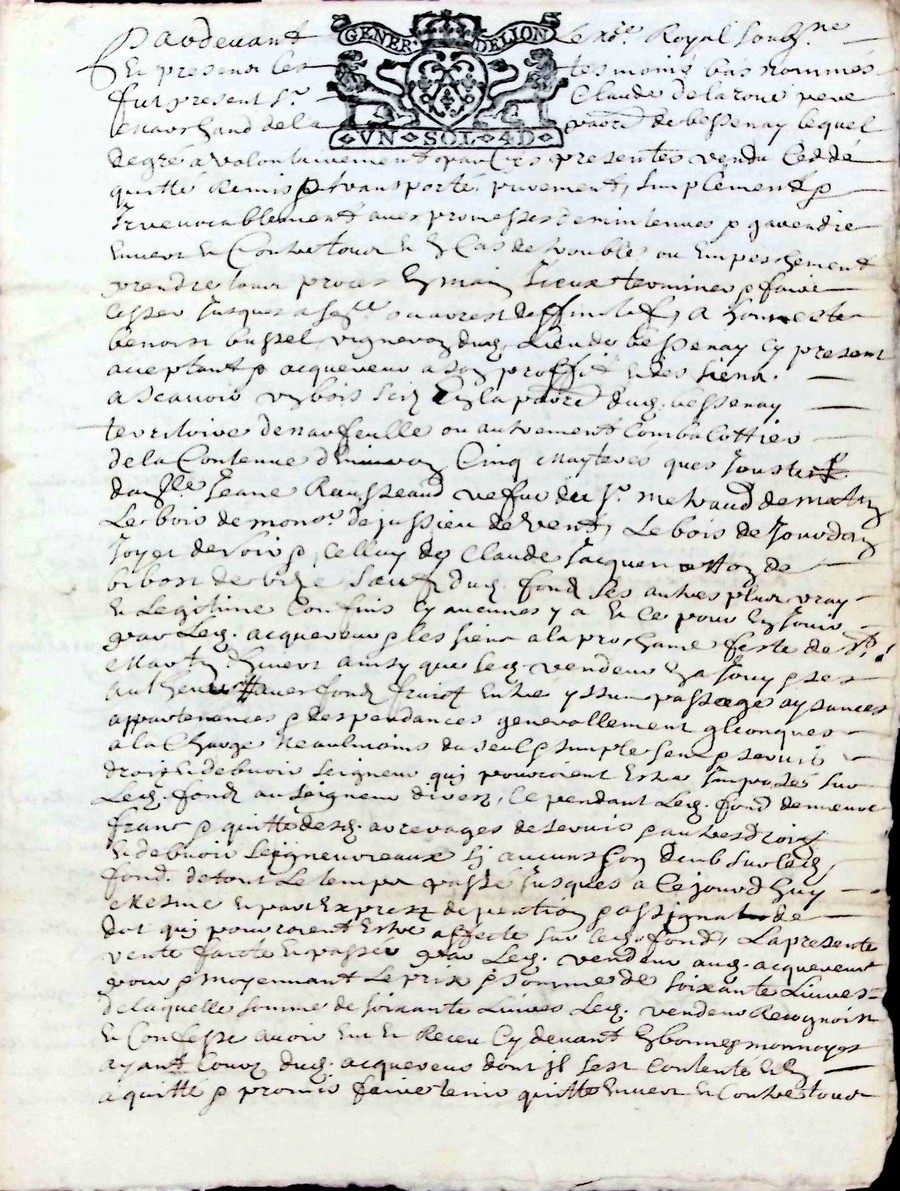 Pardevant Le no.re Royal soubz.ne
Et presence les tesmoins bas nommés
fut present S.r Claude de la roue pere
marchand de la parr.e de bessenay lequel
de gré a volontairement par ces presentes vendu ceddé
quitté Remis & transporté purement, simplement &
Irrevocablement avec promesses de maintenues & garendir
Envers Et Contre tous Et En Cas de troubles ou Empeschement
prendre leur proces En main Iceux terminer & faire
Cesser Jusques a arrest deffinitif, A honneste
benoist bussel vigneron dud. Lieu de bessenay cy present
acceptant & acquereur a son proffit Et des siens.
a scavoir un bois sciz En la parr.e dud. bessenay
territoire de naufeulle ou autrement Combacottier
de la Contenue d'environ Cinq mayteres que Jouste
dam.lle Jeane Rausseaud vefve du S.r metraud de
Le bois de mons.r dejussieu de vent, Le bois de Jourdan
Joyet de soir &, Celluy de Claude Jacquemetton de
bibost de bize sauf dud. fond ses autres plus vray
Et Legitime Confins sy aucunes y a Et ce pour En Jouir
par Led. acquereur & les siens a la prochaine feste de S.t
Martin d'hiver ainsy que led. vendeur En a Jouy & ses
autheurs avec fond fruict Entree yssue passages aysances
appartenances & despendances generallement qlconques
a la Charge neaulmoins du seul & simple sens & servis
droict Et debvoir seigneur qui pourroient Estre Imposés sur
Led. fond au seigneur divers, Cependant Led. fond demeure
franc & quitte desd. arrerages de servis & autres droict
Et debvoir seigneureaux sy aucuns son deub sur led.
fond. de tout Le temps passé Jusques a Ce jourd huy
mesme Et par Exprez de pention & assignat de
dot qui pourroient Estre affecte sur led. fond, La presente
vente faicte Et passée par Led. vendeur aud. acquereur
pour & moyennant Le prix & somme de soixante Livres
de laquelle somme de soixante Livres Led. vendeur Recognoist
Et Confesse avoir Eu Et Receu Cy devant En bonnes monnoyes
ayant Cours dud. acquereur dont il s'est Contente Et En
a quitté & promis faire tenir quitte Envers Et Contre tous
GENER DELION
VN SOL 4D